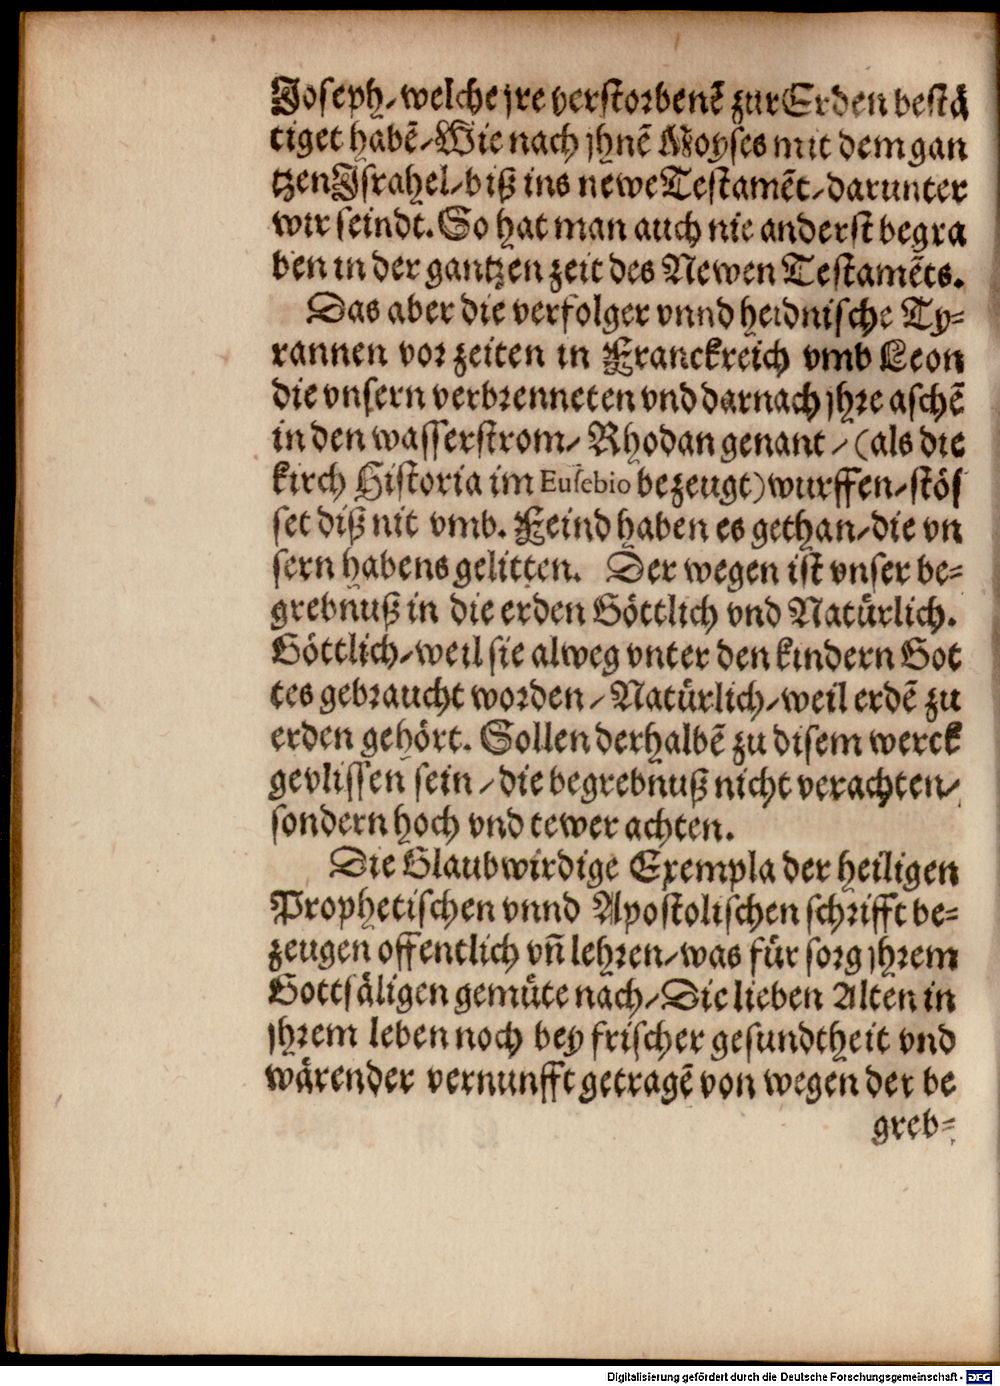 Joseph/ welche jre verstorbenē zur Erden bestä
tiget habē/ Wie nach jhnē Moyses mit dem gan
tzen Israhel/ biß ins newe Testamēt/ darunter
wir seindt. So hat man auch nie anderst begra
ben in der gantzen zeit des Newen Testamēts.
Das aber die verfolger vnnd heidnische Ty-
rannen vor zeiten in Franckreich vmb Leon
die vnsern verbrenneten vnd darnach jhre aschē
in den wasserstrom/ Rhodan genant/ (als die
kirch Historia im Eusebio bezeugt) wurffen/ stös
set diß nit vmb. Feind haben es gethan/ die vn
sern habens gelitten. Der wegen ist vnser be-
grebnuß in die erden Göttlich vnd Natürlich.
Göttlich/ weil sie alweg vnter den kindern Got
tes gebraucht worden/ Natürlich/ weil erdē zu
erden gehört. Sollen derhalbē zu disem werck
gevlissen sein/ die begrebnuß nicht verachten/
sondern hoch vnd tewer achten.
Die Glaubwirdige Exempla der heiligen
Prophetischen vnnd Apostolischen schrifft be-
zeugen offentlich vñ lehren/ was für sorg jhrem
Gottsäligen gemüte nach/ Die lieben Alten in
jhrem leben noch bey frischer gesundtheit vnd
wärender vernunfft getragē von wegen der be
greb-
Digitalisierung gefördert durch die Deutsche Forschungsgemeinschaft - DFG